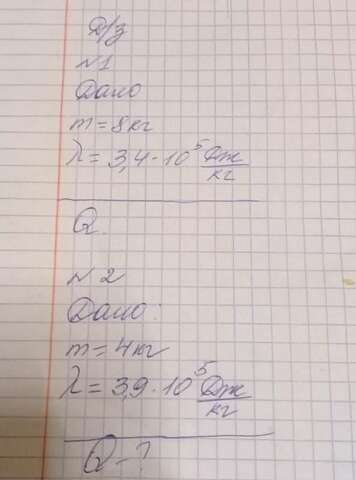 Д/з
№1
Дано
m=8кг
λ=3,4·10⁵ Дж/кг
Q
№2
Дано:
m=4кг
λ=3,9·10⁵ Дж/кг
Q-?